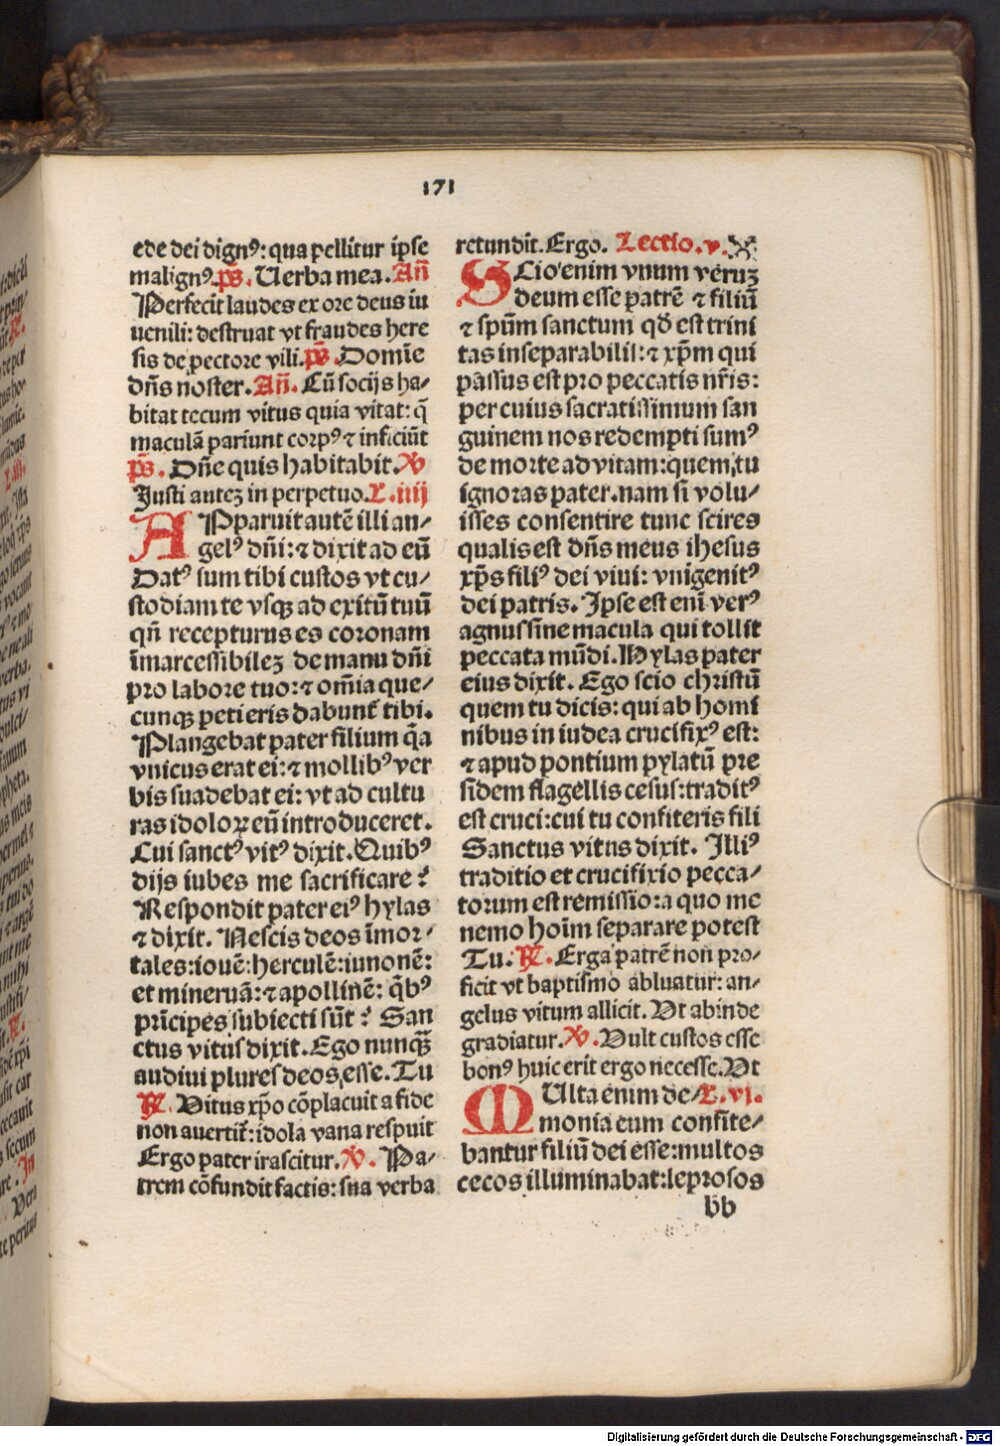 171
ede dei dignꝰ: qua pellitur ipse
malignꝰ. p̄s. Uerba mea. Añ
Perfecit laudes ex ore deus iu
uenili: destruat vt fraudes here
sis de pectore vili. p̄s. Domīe
dñs noster. Añ. Cū socijs ha-
bitat tecum vitus quia vitat: q̄
maculā pariunt corpꝰ ⁊ inficiūt
p̄s. Dñe quis habitabit. ℣
Justi auteꝫ in perpetuo. L. iiij
APparuit autē illi an-
gelꝰ dñi: ⁊ dixit ad eū
Datꝰ sum tibi custos vt cu-
stodiam te vsqꝫ ad exitū tuū
qñ recepturus es coronam
īmarcessibileꝫ de manu dñi
pro labore tuo: ⁊ om̄ia que-
cunqꝫ petieris dabunt̄ tibi.
Plangebat pater filium q̄a
vnicus erat ei: ⁊ mollibꝰ ver
bis suadebat ei: vt ad cultu
ras idoloꝝ eū introduceret.
Cui sanctꝰ vitꝰ dixit. Quibꝰ
dijs iubes me sacrificare?
Respondit pater eiꝰ hylas
⁊ dixit. Nescis deos īmor-
tales: iouē: herculē: iunonē:
et mineruā: ⁊ apollinē: q̄bꝰ
prīcipes subiecti sūt? San
ctus vitus dixit. Ego nunqꝫ̄
audiui plures deos esse. Tu
℟. Vitus xp̄o cōplacuit a fide
non auertit̄: idola vana respuit
Ergo pater irascitur. ℣. Pa-
trem cōfundit factis: sua verba
retundit. Ergo. Lectio. v.
SCio enim vnum veruꝫ
deum esse patrē ⁊ filiū
⁊ spūm sanctum qd̄ est trini
tas inseparabilis: ⁊ xp̄m qui
passus est pro peccatis nr̄is:
per cuius sacratissimum san
guinem nos redempti sumꝰ
de morte ad vitam: quem tu
ignoras pater. nam si volu-
isses consentire tunc scires
qualis est dñs meus ihesus
xp̄s filiꝰ dei viui: vnigenitꝰ
dei patris. Ipse est enī verꝰ
agnus sine macula qui tollit
peccata mūdi. Hylas pater
eius dixit. Ego scio christū
quem tu dicis: qui ab homi
nibus in iudea crucifixꝰ est:
⁊ apud pontium pylatū pre
sidem flagellis cesus: traditꝰ
est cruci: cui tu confiteris fili
Sanctus vitus dixit. Illiꝰ
traditio et crucifixio pecca-
torum est remissio: a quo me
nemo hoīm separare potest
Tu. ℟. Erga patrē non pro-
ficit vt baptismo abluatur: an-
gelus vitum allicit. Vt abinde
gradiatur. ℣. Vult custos esse
bonꝰ huic erit ergo necesse. Vt
MUlta enim de- L. vj.
monia eum confite-
bantur filiū dei esse: multos
cecos illuminabat: leprosos
bb
Digitalisierung gefördert durch die Deutsche Forschungsgemeinschaft - DFG